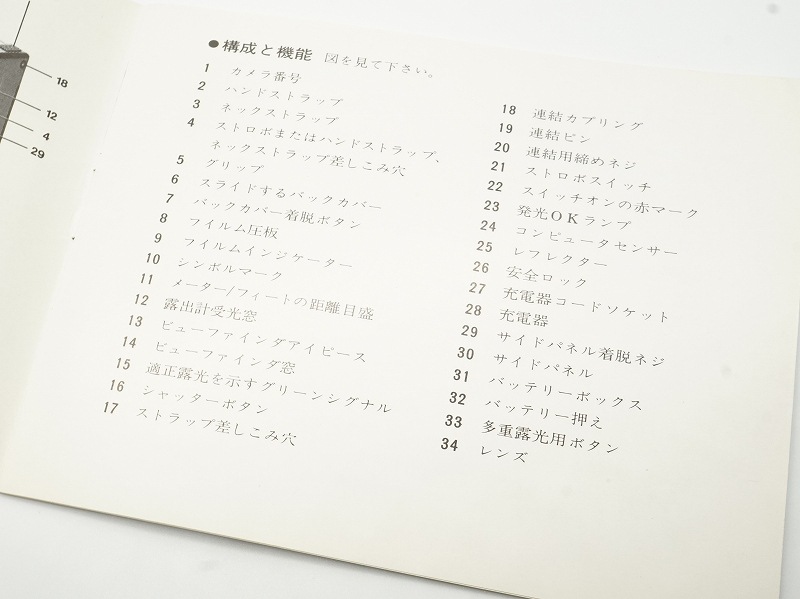 18
12
4
29
●構成と機能 図を見て下さい。
1 カメラ番号
2 ハンドストラップ
3 ネックストラップ
4 ストロボまたはハンドストラップ、
ネックストラップ差しこみ穴
5 グリップ
6 スライドするバックカバー
7 バックカバー着脱ボタン
8 フイルム圧板
9 フイルムインジケーター
10 シンボルマーク
11 メーター/フィートの距離目盛
12 露出計受光窓
13 ビューファインダアイピース
14 ビューファインダ窓
15 適正露光を示すグリーンシグナル
16 シャッターボタン
17 ストラップ差しこみ穴
18 連結カプリング
19 連結ピン
20 連結用締めネジ
21 ストロボスイッチ
22 スイッチオンの赤マーク
23 発光OKランプ
24 コンピュータセンサー
25 レフレクター
26 安全ロック
27 充電器コードソケット
28 充電器
29 サイドパネル着脱ネジ
30 サイドパネル
31 バッテリーボックス
32 バッテリー押え
33 多重露光用ボタン
34 レンズ